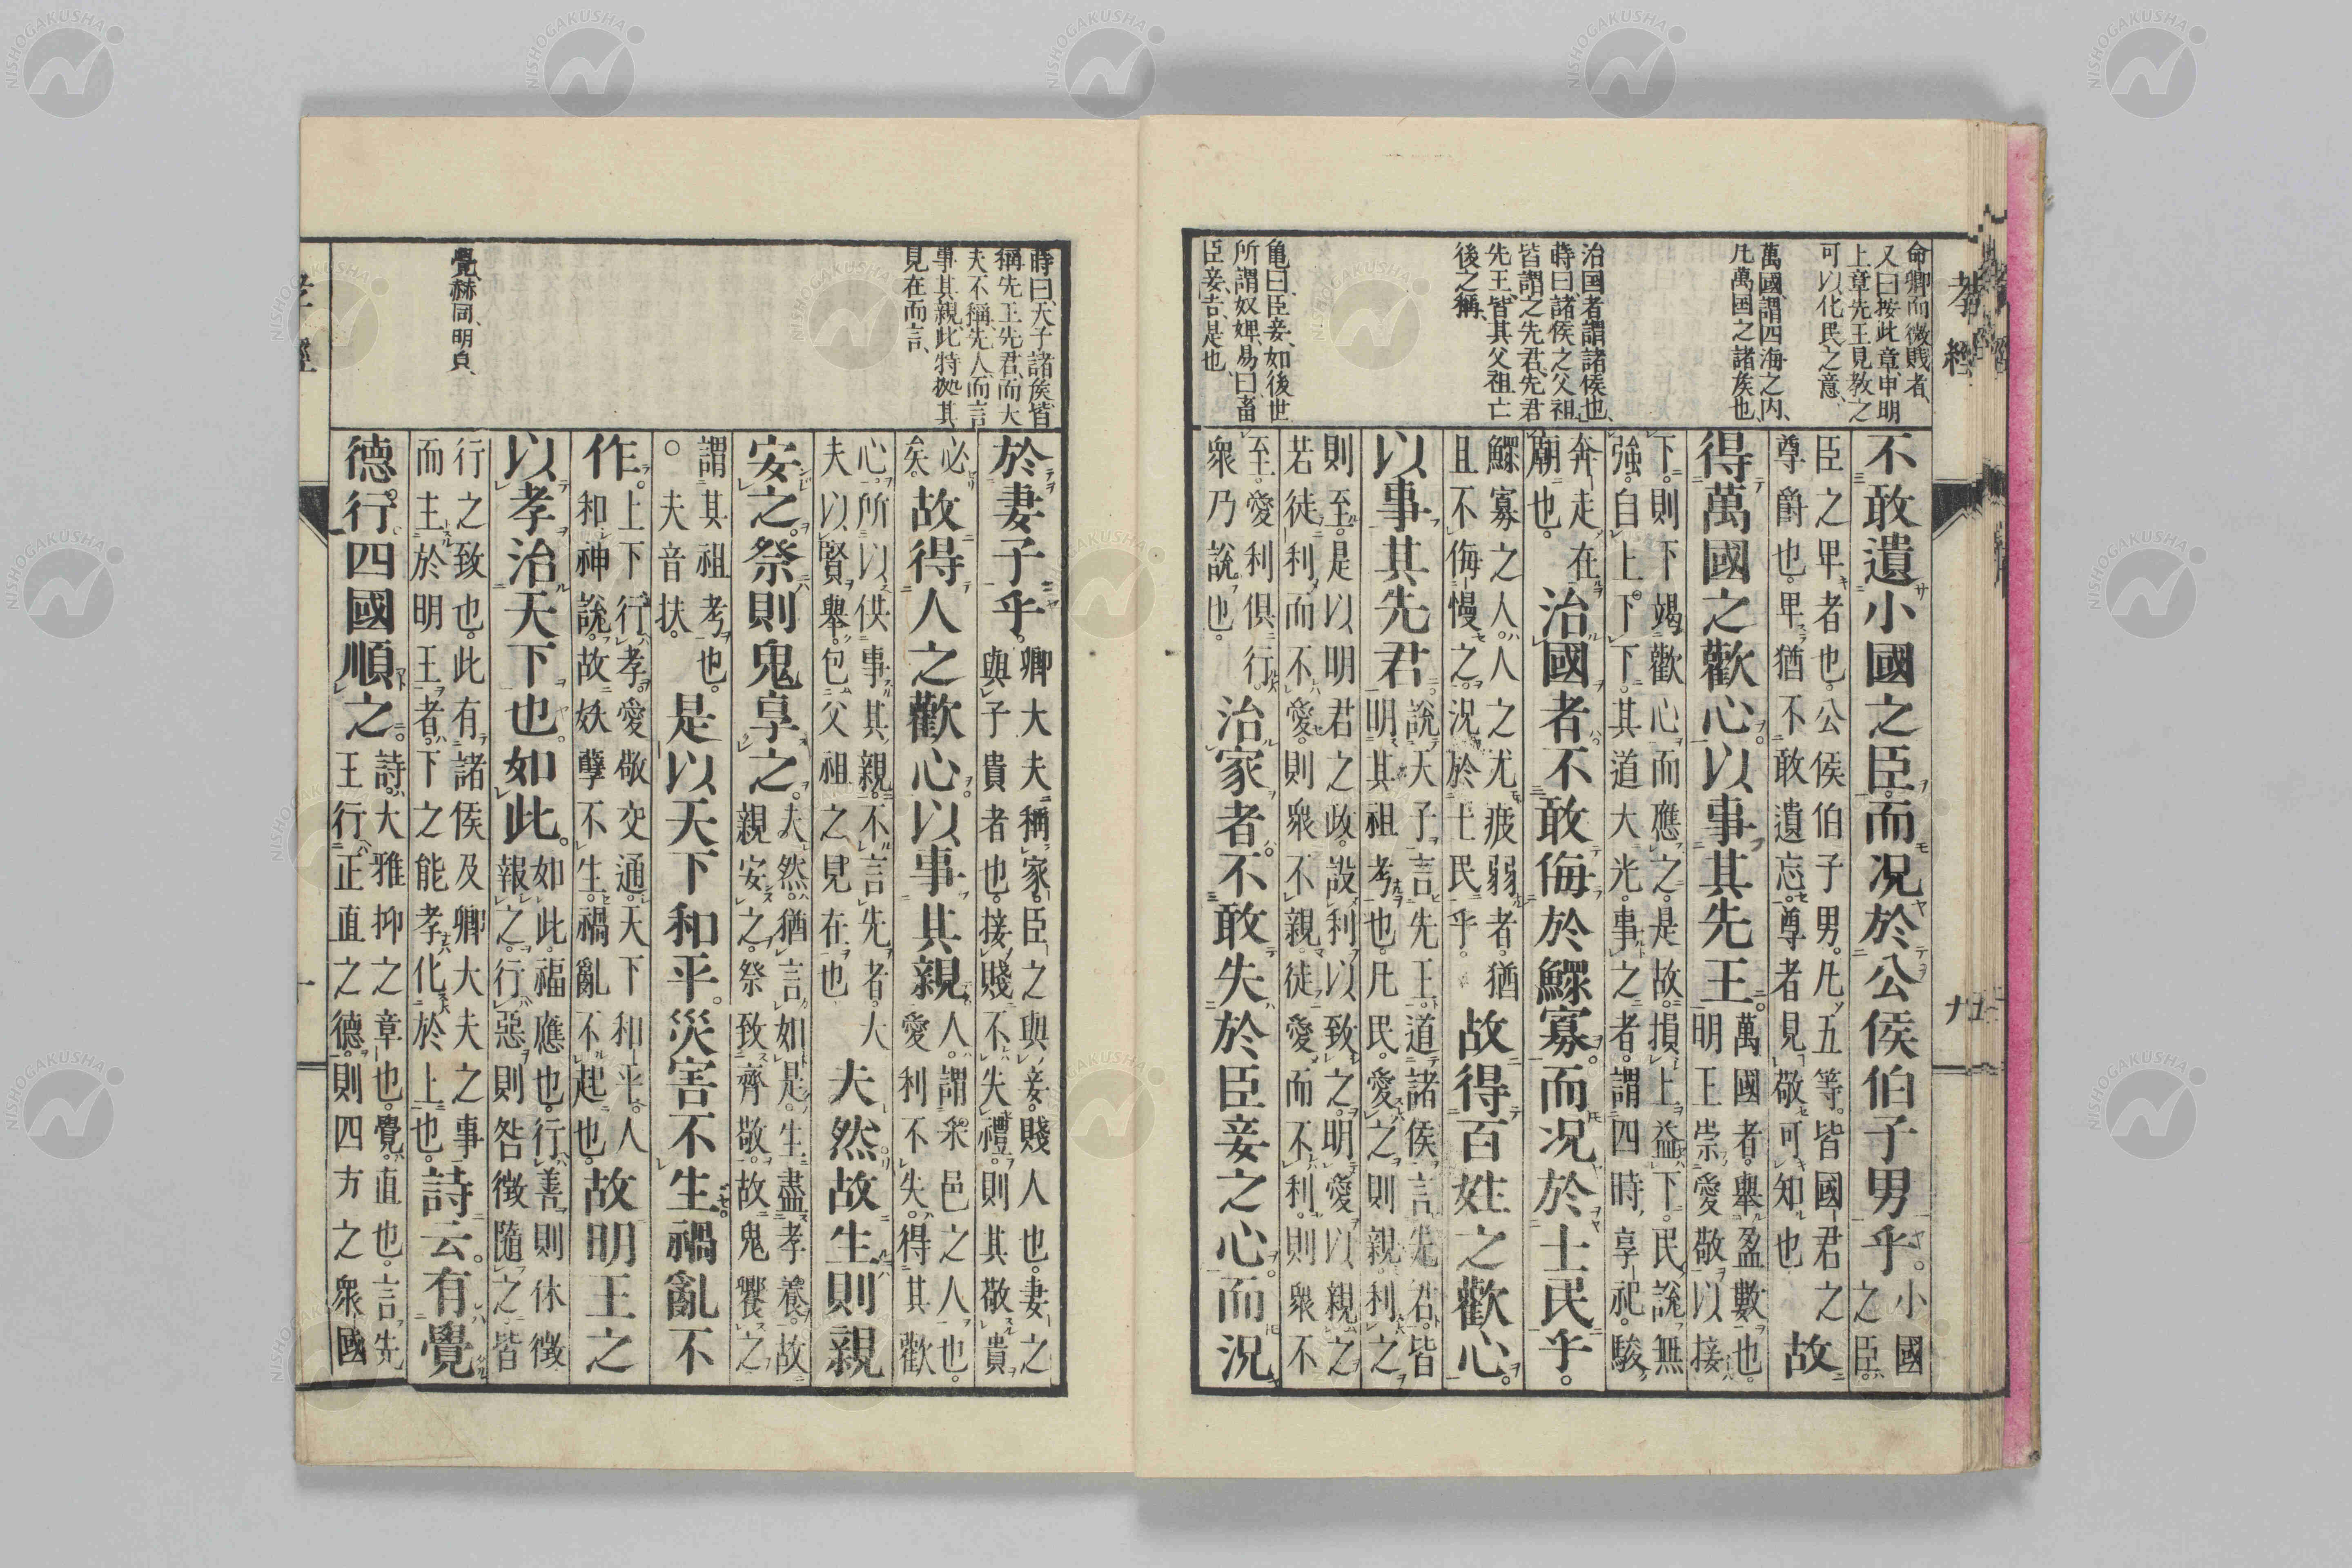 孝經
命卿而微賎者、
又曰按此章、申明
上章先王見教之
可以化民之意、
萬國、謂四海之内、
凢萬国之諸矦也、
治国者、謂諸侯也、
蒔曰、諸侯之父祖、
皆謂之先君、先君
先王、皆其父祖亡
後之稱、
亀曰、臣妾、如後世
所謂奴婢、易曰、畜
臣妾吉、是也、
不敢遺小國之臣。而況於公侯伯子男乎。小國之臣。
臣之卑者也。公侯伯子男。凢五等。皆國君之尊爵也。卑猶不敢遺忘。尊者見敬可知也故
得萬國之歡心。以事其先王。萬國者。舉盈數也。明王崇愛敬以接
下。則下竭歡心而應之。是故。損上益下。民說無強。自上下下。其道大光。事之者。謂四時享祀。駿
奔走在廟也。治國者。不敢侮於鰥寡。而況於士民乎。
鰥寡之人。人之尤疲弱者。猶且不侮慢之。況於士民乎。故得百姓之歡心。
以事其先君。說天子言先王。道諸侯言先君。皆明其祖考也。凢民。愛之則親。利之
則至。是以明君之政。設利以致之。明愛以親之若徒利而不愛。則衆不親。徒愛而不利。則衆不
至。愛利俱行。衆乃說也。治家者。不敢失於臣妾之心。而況
蒔曰、天子諸矦、皆
稱先王先君、而大
夫不稱先人、而言
事其親、此特拠其
見在而言、
覺、赫同、明皃、
於妻子乎。卿大夫稱家。臣之與妾。賤人也。妻之與子貴者也。接賤不失禮。則其敬貴
必矣。故得人之歡心。以事其親人。謂采邑之人也。愛利不失。得其歡
心。所以供事其親。不言先者。大夫以賢舉。包父祖之見在也夫然。故生則親
安之。祭則鬼享之。夫然。猶言如是。生盡孝養。故親安之。祭致齊敬。故鬼饗之
謂其祖考也。○夫音扶。是以天下和平。災害不生。禍亂不
作。上下行孝。愛敬交通。天下和平。人和神說。故妖孽不生。禍亂不起也。故明王之
以孝治天下也。如此。如此。福應也。行善則休徵報之。行惡則咎徵隨之。皆
行之致也。此有諸侯及卿大夫之事而主於明王者。下之能孝化於上也。詩云。有覺
德行。四國順之。詩大雅抑之章也。覺。直也。言先王行正直之德。則四方之衆國